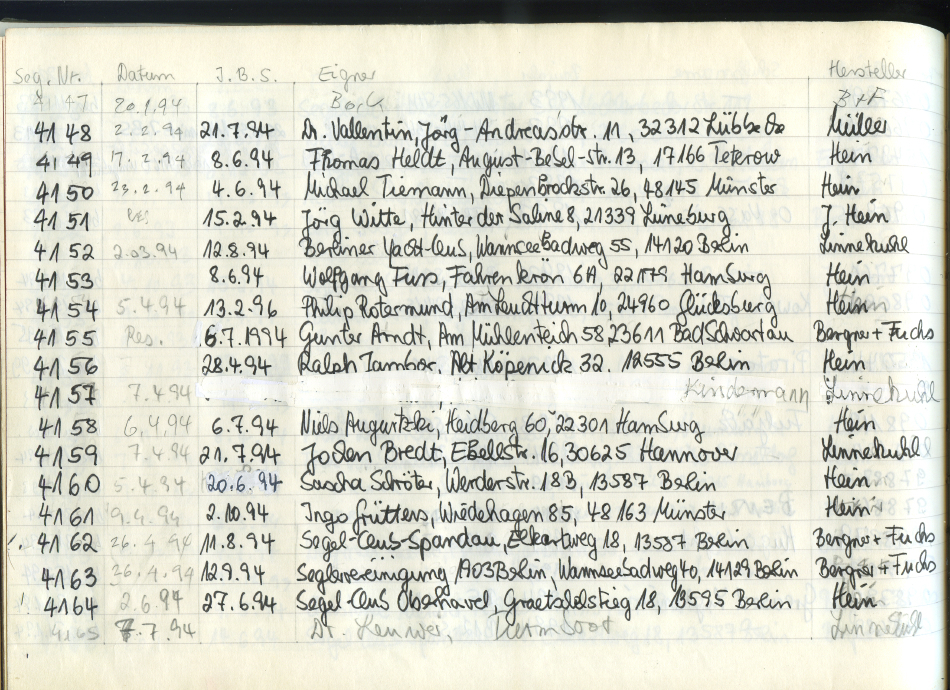 Seg. Nr. Datum J.B.S. Eigner Hersteller
4147 20.1.94 Bock B+F
4148 2.2.94 21.7.94 Dr. Vallentin, Jörg-Andreasstr. 11, 32312 Lübbecke Müller
4149 17.2.94 8.6.94 Thomas Heldt, August-Bebel-Str. 13, 17166 Teterow Hein
4150 23.2.94 4.6.94 Michael Tiemann, Diepenbrockstr. 26, 48145 Münster Hein
4151 15.2.94 Jörg Witte, Hinter der Saline 8, 21339 Lüneburg J. Hein
4152 2.03.94 12.8.94 Berliner Yacht-Club, Wannseebadweg 55, 14120 Berlin Linnekuhl
4153 8.6.94 Wolfgang Fuss, Fahrenkrön 6A, 22179 Hamburg Hein
4154 5.4.94 13.2.96 Philip Rotermund, Am Leuchtturm 10, 24960 Glücksburg Hein
4155 Res. 6.7.1994 Gunter Arndt, Am Mühlenteich 58 23611 Bad Schwartau Bergner+Fuchs
4156 28.4.94 Ralph Tambor, Alt Köpenick 32. 12555 Berlin Hein
4157 7.4.94 Kindermann Linnekuhl
4158 6.4.94 6.7.94 Niels Augurtzki, Heidberg 60, 22301 Hamburg Hein
4159 7.4.94 21.7.94 Jochen Bredt, Ebellstr. 16, 30625 Hannover Linnekuhl
4160 5.4.94 20.6.94 Sascha Schröter, Werderstr. 18B, 13587 Berlin Hein
4161 9.4.94 2.10.94 Ingo Grütters, Wiedehagen 85, 48163 Münster Hein
4162 26.4.94 11.8.94 Segel-Club-Spandau, Elkartweg 18, 13587 Berlin Bergner+Fuchs
4163 26.4.94 12.9.94 Seglervereinigung 1903 Berlin, Wannseebadweg 40, 14129 Berlin Bergner+Fuchs
4164 2.6.94 27.6.94 Segel-Club Oberhavel, Graetschelstieg 18, 13595 Berlin Hein
4165 7.7.94 Dr. Linnekuhl